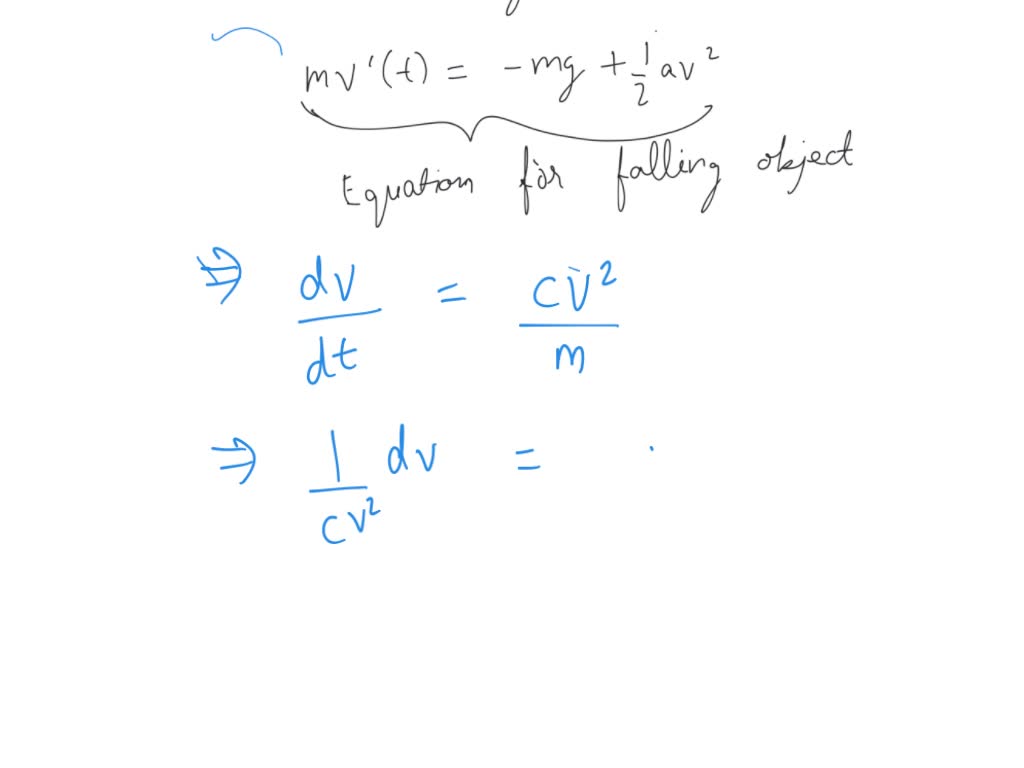 mv'(t) = -mg + 1/2 av²
Equation for falling object
⇒ dv/dt = cv²/m
⇒ 1/cv² dv =